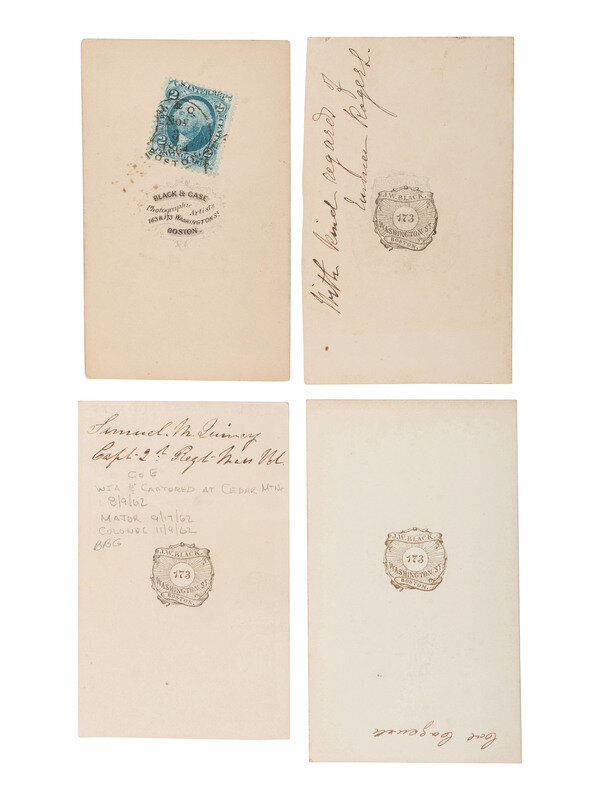 2
2
BLACK & CASE
Photographic Artists
163 & 173 WASHINGTON ST.
BOSTON
With kind regards of
Rogers.
J.W. BLACK
173
WASHINGTON. ST.
BOSTON.
Samuel. M. Quincy
Capt- 2d Regt- Mass Vol.
CO E
WIA & CAPTURED AT CEDAR MTN
8/9/62
MAJOR 9/17/62
COLONEL 11/9/62
BBG
J.W. BLACK
173
WASHINGTON. ST.
BOSTON.
J.W. BLACK
173
WASHINGTON. ST.
BOSTON.
Col